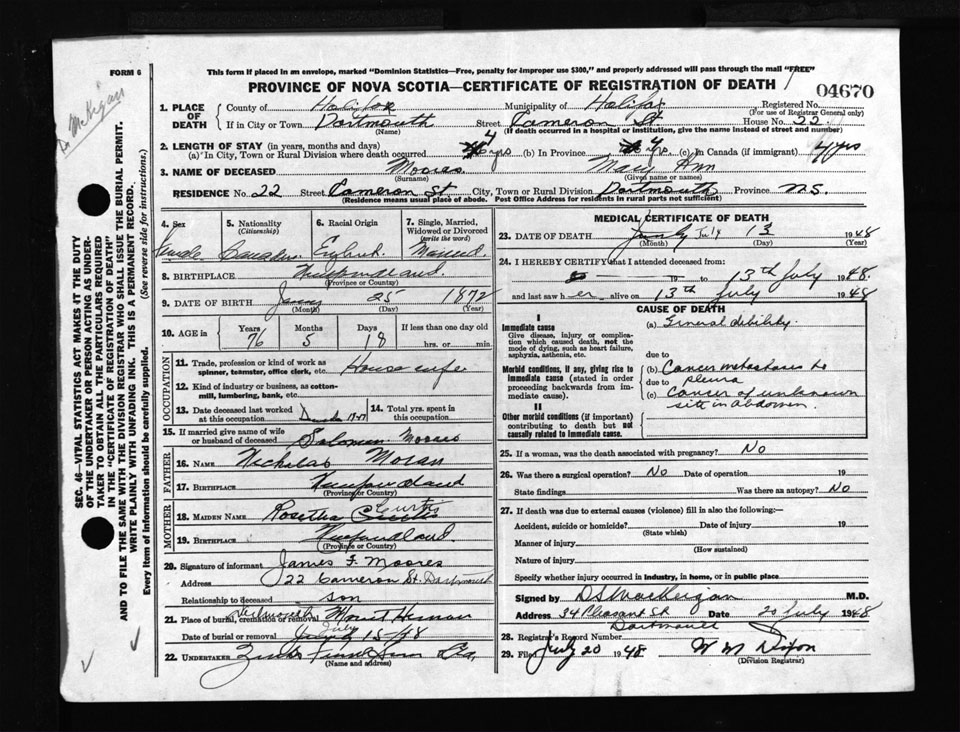 FORM 6
This form if placed in an envelope, marked "Dominion Statistics—Free, penalty for improper use $300," and properly addressed will pass through the mail "FREE"
PROVINCE OF NOVA SCOTIA—CERTIFICATE OF REGISTRATION OF DEATH
04670
1. PLACE OF DEATH
County of Halifax Municipality of Halifax Registered No.
(For use of Registrar General only)
If in City or Town Dartmouth Street Cameron St. House No. 22
(Name) (If death occurred in a hospital or institution, give the name instead of street and number)
2. LENGTH OF STAY (in years, months and days)
(a) In City, Town or Rural Division where death occurred 4 yrs (b) In Province 4 yrs. (c) In Canada (if immigrant) 4 yrs
3. NAME OF DECEASED Moores Mary Ann
(Surname) (Given name or names)
RESIDENCE No. 22 Street Cameron St City, Town or Rural Division Dartmouth Province N.S.
(Residence means usual place of abode. Post Office Address for residents in rural parts not sufficient)
4. Sex Female
5. Nationality (Citizenship) Canadian
6. Racial Origin English
7. Single, Married, Widowed or Divorced (write the word) Married
8. BIRTHPLACE Newfoundland
(Province or Country)
9. DATE OF BIRTH 25 1872
(Month) (Day) (Year)
10. AGE in Years 76 Months 5 Days 18 If less than one day old hrs. or min.
OCCUPATION
11. Trade, profession or kind of work as spinner, teamster, office clerk, etc. House wife
12. Kind of industry or business, as cotton-mill, lumbering, bank, etc.
13. Date deceased last worked at this occupation
14. Total yrs. spent in this occupation
15. If married give name of wife or husband of deceased Solomon Moores
FATHER
16. NAME Nicholas Moran
17. BIRTHPLACE Newfoundland
(Province or Country)
MOTHER
18. MAIDEN NAME Curtis
19. BIRTHPLACE Newfoundland.
(Province or Country)
20. Signature of informant James F. Moores
Address 22 Cameron St. Dartmouth
Relationship to deceased son
21. Place of burial, cremation or removal Mount Herman
Date of burial or removal July 15/48
22. UNDERTAKER
(Name and address)
MEDICAL CERTIFICATE OF DEATH
23. DATE OF DEATH July 13 1948
(Month) (Day) (Year)
24. I HEREBY CERTIFY that I attended deceased from
19 to 13th July 1948.
and last saw her alive on 13th July 1948
CAUSE OF DEATH
I
Immediate cause
Give disease, injury or complication which caused death, not the mode of dying, such as heart failure, asphyxia, asthenia, etc.
(a) General debility.
due to
Morbid conditions, if any, giving rise to immediate cause (stated in order proceeding backwards from immediate cause).
(b) Cancer metastases to pleura
due to
(c) Cancer of unknown site in abdomen.
II
Other morbid conditions (if important) contributing to death but not causally related to immediate cause.
25. If a woman, was the death associated with pregnancy? No
26. Was there a surgical operation? No Date of operation 19
State findings Was there an autopsy? No
27. If death was due to external causes (violence) fill in also the following:—
Accident, suicide or homicide? Date of injury 19
(State which)
Manner of injury
(How sustained)
Nature of injury
Specify whether injury occurred in industry, in home, or in public place
Signed by M.D.
Address 34 Pleasant St Date 20 July 1948
Dartmouth
28. Registrar's Record Number
29. Filed July 20 1948 W M Dixon
(Division Registrar)
SEC. 46—VITAL STATISTICS ACT MAKES IT THE DUTY
OF THE UNDERTAKER OR PERSON ACTING AS UNDER-
TAKER TO OBTAIN ALL THE PARTICULARS REQUIRED
IN THE "CERTIFICATE OF REGISTRATION OF DEATH"
AND TO FILE THE SAME WITH THE DIVISION REGISTRAR WHO SHALL ISSUE THE BURIAL PERMIT.
WRITE PLAINLY WITH UNFADING INK. THIS IS A PERMANENT RECORD.
Every item of information should be carefully supplied. (See reverse side for instructions.)